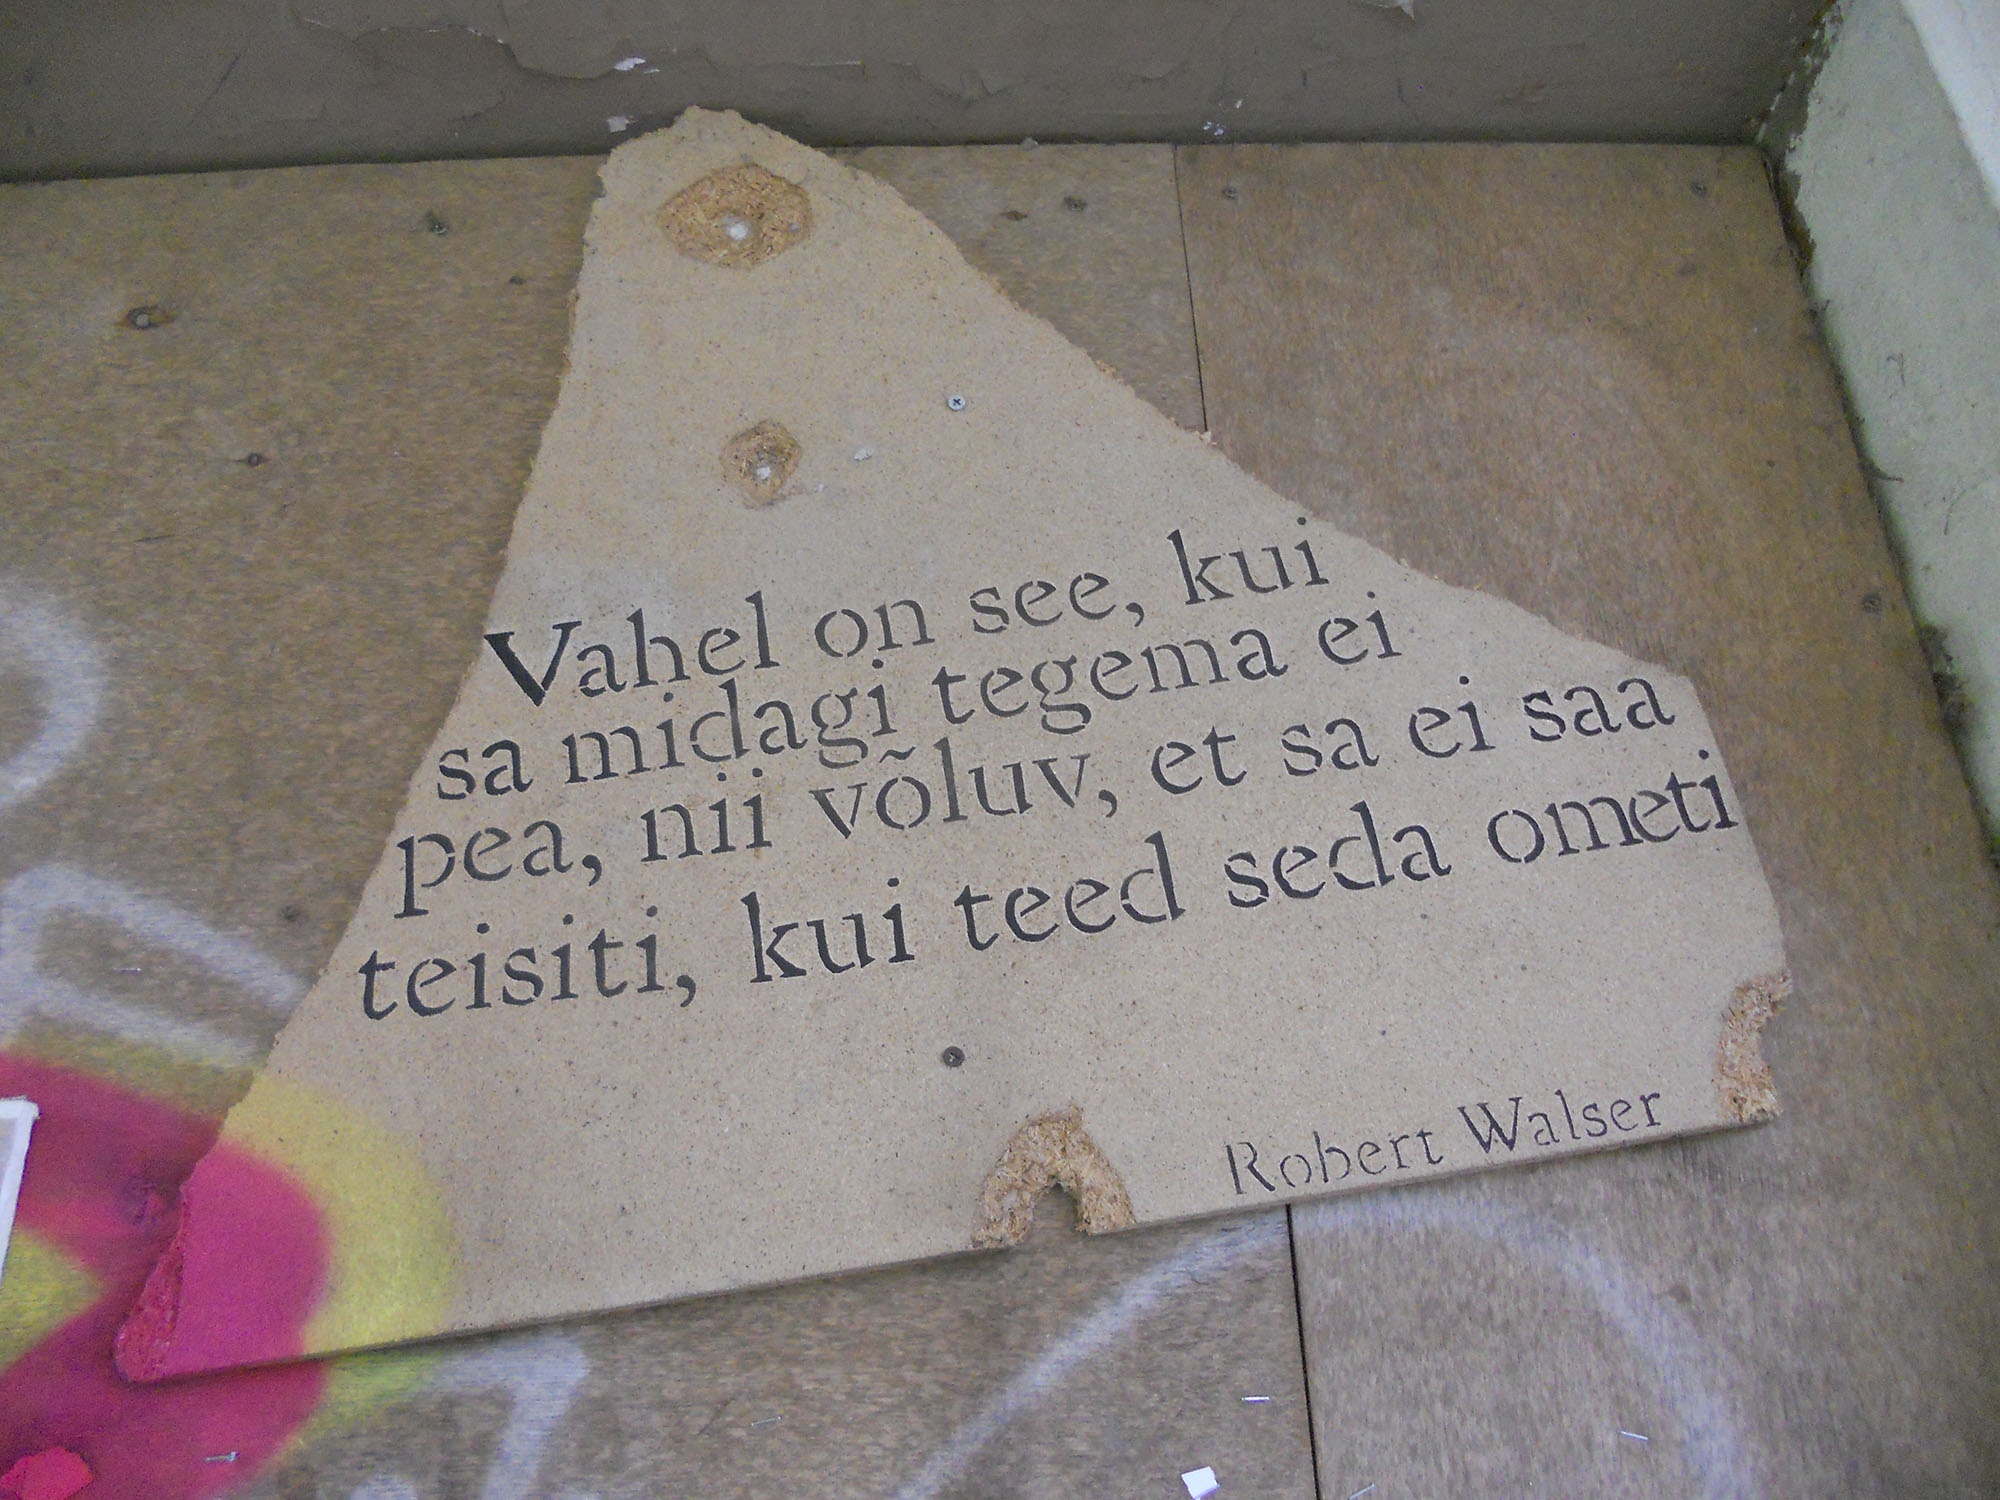 Vahel on see, kui
sa midagi tegema ei
pea, nii võluv, et sa ei saa
teisiti, kui teed seda ometi
Robert Walser